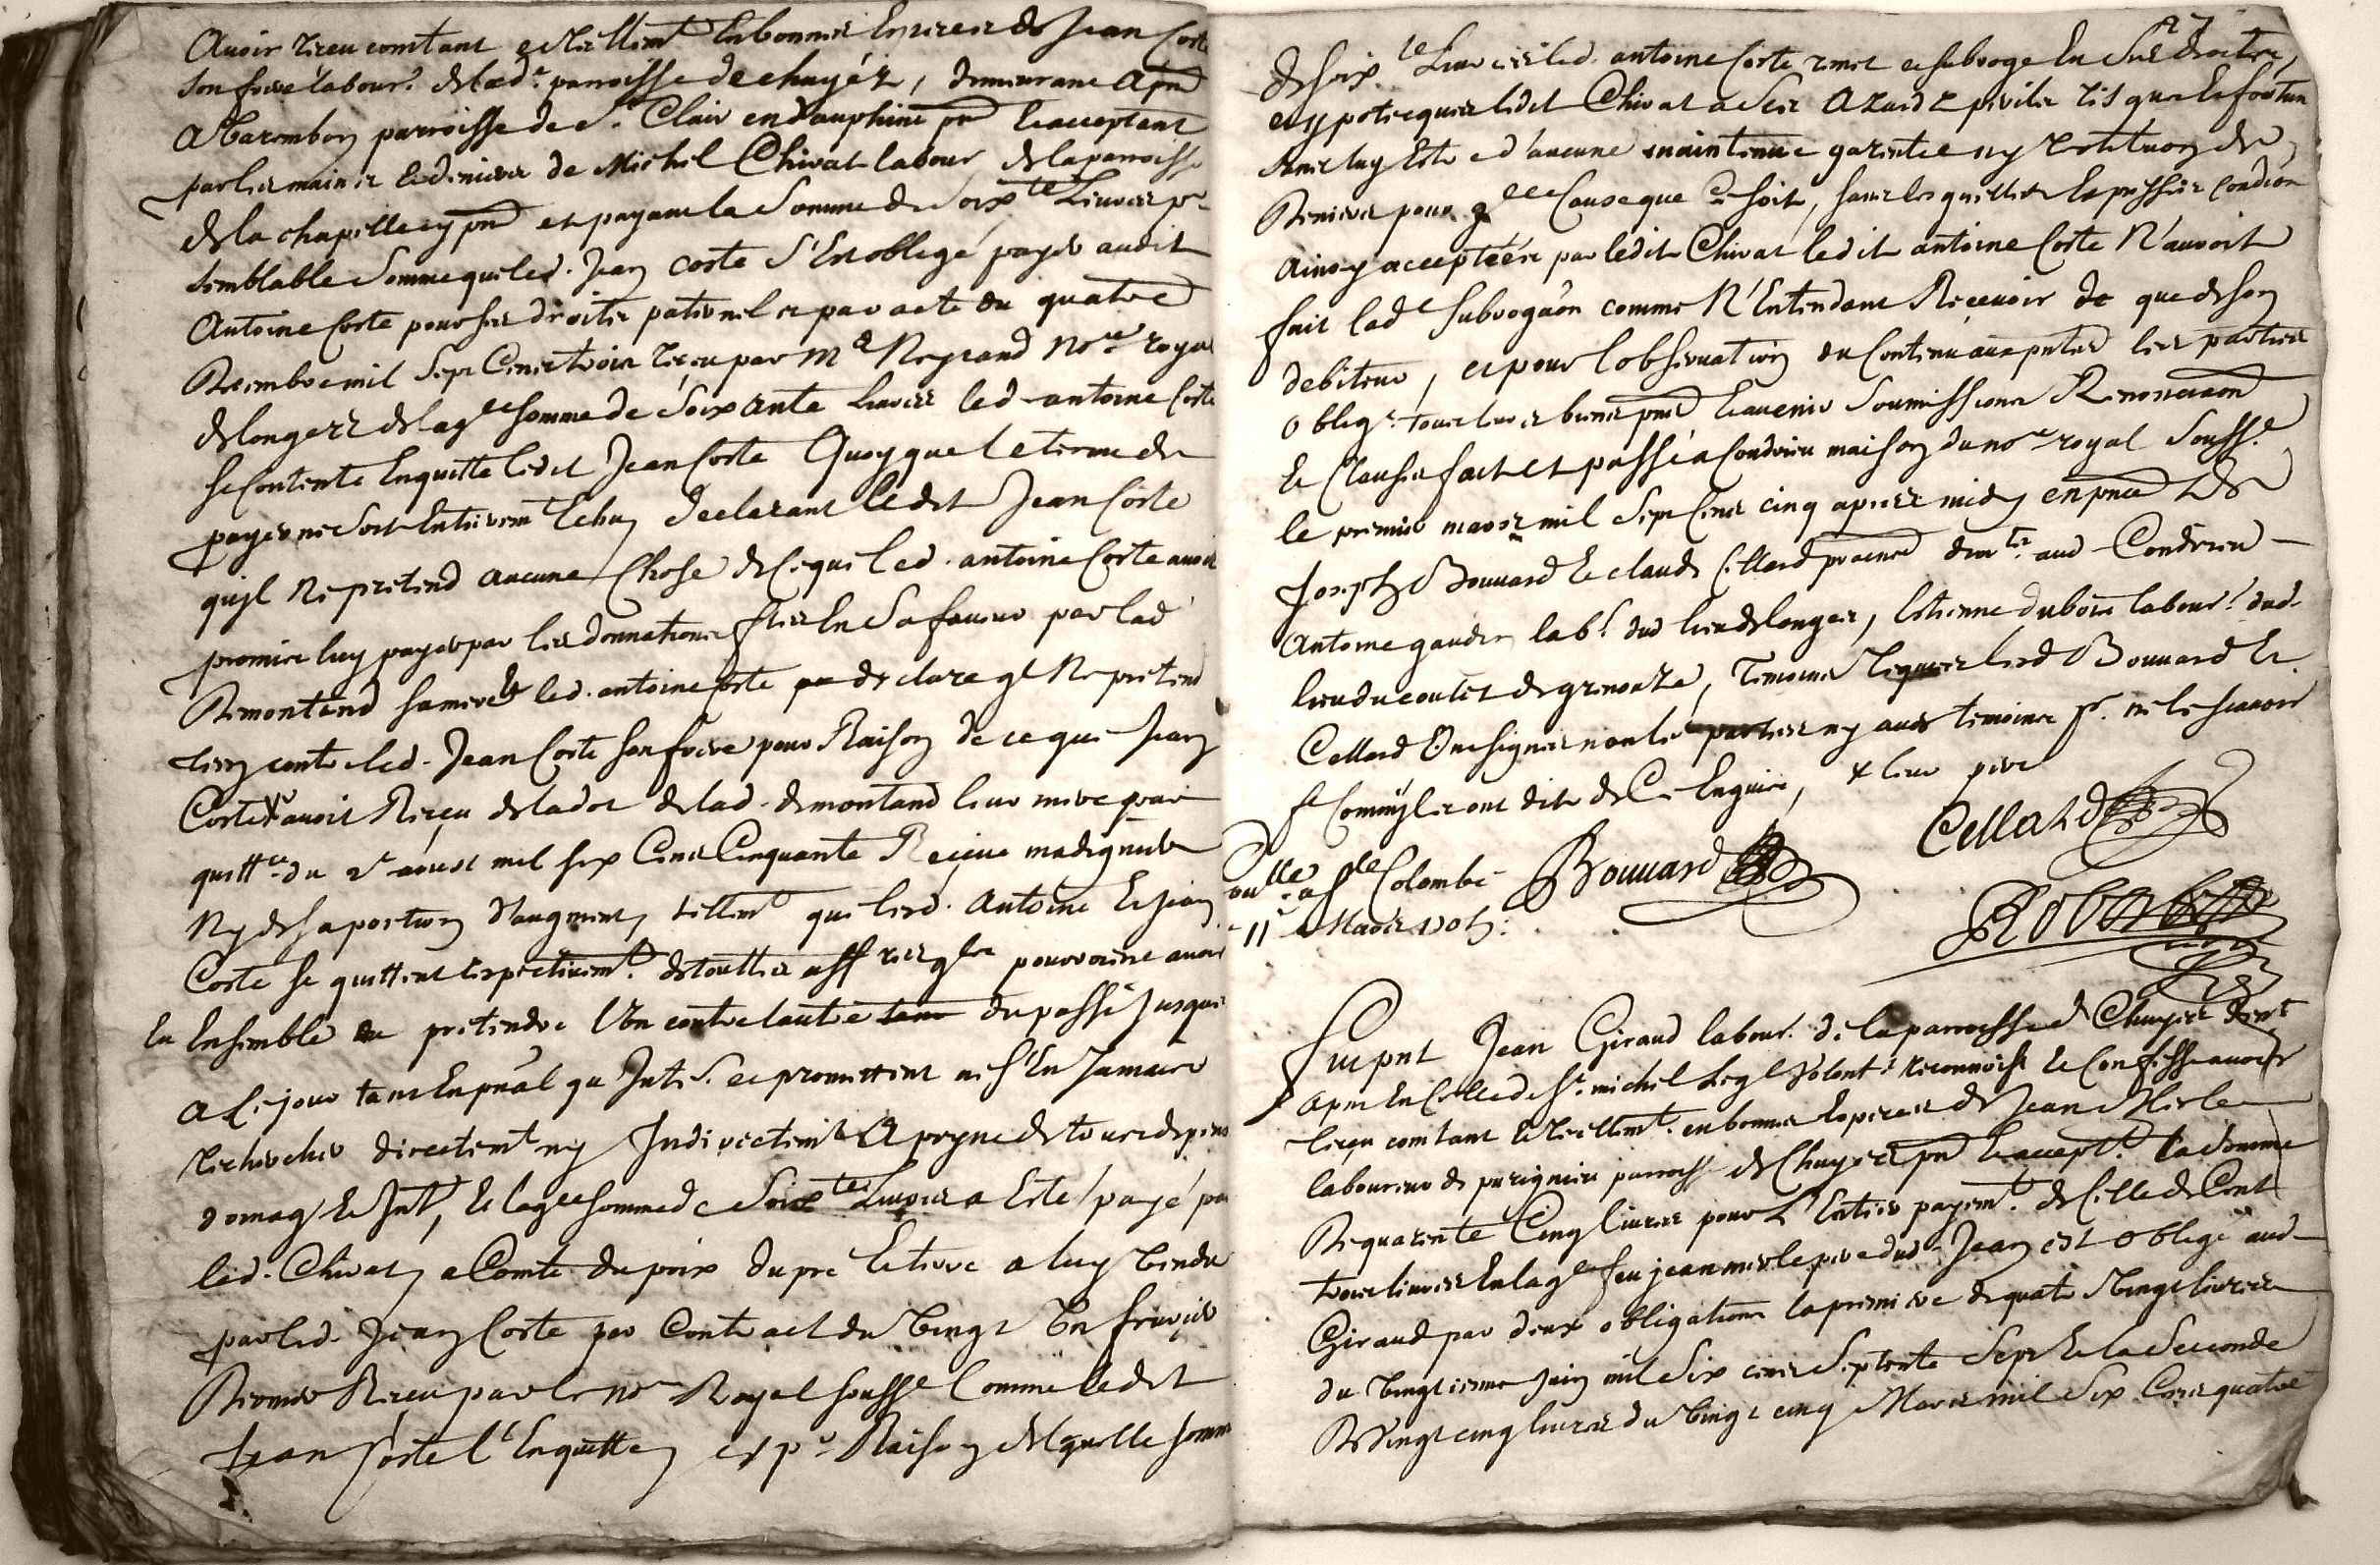 Avoir receu contant et reellemt en bonnes especes de Jean Coste
son frere labourr de lad. parroisse de chuyés, demeurant apnt
a Varambon parroisse de St Clair en dauphiné pnt et acceptant
par les mains et deniers de Michel Chivat labour de la parroisse
de la chapelle cy pnt et payant la somme de soixte Livres pr
semblable somme que led. Jean coste s'est oblegé payer audit
Antoine Coste pour ses droits paternels par acte du quatre
mil sept Cens trois receu par Me Neyrand nore royal
de longes de laqlle somme de soixante Livres led. antoine Coste
se contente En quitte ledit Jean Coste Quoyque le terme de
payer ne soit Entieremt Echu declarant ledit Jean Coste
qu'jl Ne pretend aucune Chose de ce que led. antoine Coste avoit
promis luy payer par les donnations faites En sa faveur par lad
Remontand sa mere & led. antoine Coste declare ql Ne pretend
rien contre led. Jean Coste son frere pour Raison de ce que Jean
Coste x avoit Reçeu de la dot de lad. demontand leur mere par
quittce du 2e aoust mil six Cens Cinquante Reçeue
Ny de sa portion d'augment, tellemt que lesd. Antoine Et Jean
Coste se quittent respectivemt de touttes affres qls pouvoient avoir
Eu Ensemble ou pretendre l'Un contre lautre du passé Jusques
a Ce jour tant En pnal qu'Jnts. et promettent ne s'En Jamais
rechercher directemt ny Jndirectemt A peyne de tous despens
domag. Et Jnts, Et laqlle somme de Soixte Livres a Esté payé par
led. Chivat a Comte du prix du pre Et terre a luy Vendu
par led. Jean Coste par Contract du Vingt Un fevrier
Dernier Receu par le nore Royal soussé Comme ledit
Jean Coste l'En quitte, et pr Raison de laquelle somme
27
de soixte Livres led. antoine Coste met et subroge En ses droits,
et ypoteques ledit Chivat a ses Azards perils risques Et fortune
sans luy Estre d'aucune maintenue garentie ny restitution de
Deniers pour qlle Cause que Ce soit, sans lesquelles Expresses Condions
ainsy acceptées par ledit Chivat ledit antoine Coste N'auroit
fait lad subrogaon comme N'Entendant Recevoir que de son
debiteur, et pour l'observation du Contenu aux pntes les parties
obligt tous leurs biens pnts Et avenir Soumissions Renonciaons
Et Clauses fait et passé a Condrieu maison du nore royal Soussé
le premier mars mil sept Cens cinq apres midy en pnce de
Joseph Bouvard Et claude Cellard demts aud Condrieu
Antoine gaudin labr dud lieu de longes, Estienne dubois labour. dud
lieu du coutet de grenouze, Temoins requis lesd Bouvard Et
Cellard On signes non les parties ny autes temoins pr ne le scavoir
f Comm'jls ont dit de Ce Enquis, x leur pere
Cellard
onllé a Ste Colombe Bouvard
11 Mars 1705
Robert
Fut pnt Jean Giraud labour. de la parroisse de Chuyes demt
apnt En Celle de St. michel Leql Volont. reconnoist Et Confesse avoir
reçeu comtant Et reellemt en bonnes Especes de Jean Merle
laboureur de parroisse de Chuyes pnt Et accept. la somme
De quarente Cinq livres pour L'Entier payemt de Celle de Cent
trois livres En laqlle feu jean merle pere dud. Jean est oblegé aud
Giraud par deux obligations la premiere de quatre Vingt livres
du Vingtieme Juin mil Six cens Septente Sept Et la Seconde
De Vingt cinq livres du Vingt cinq Mars mil Six Cens quatre